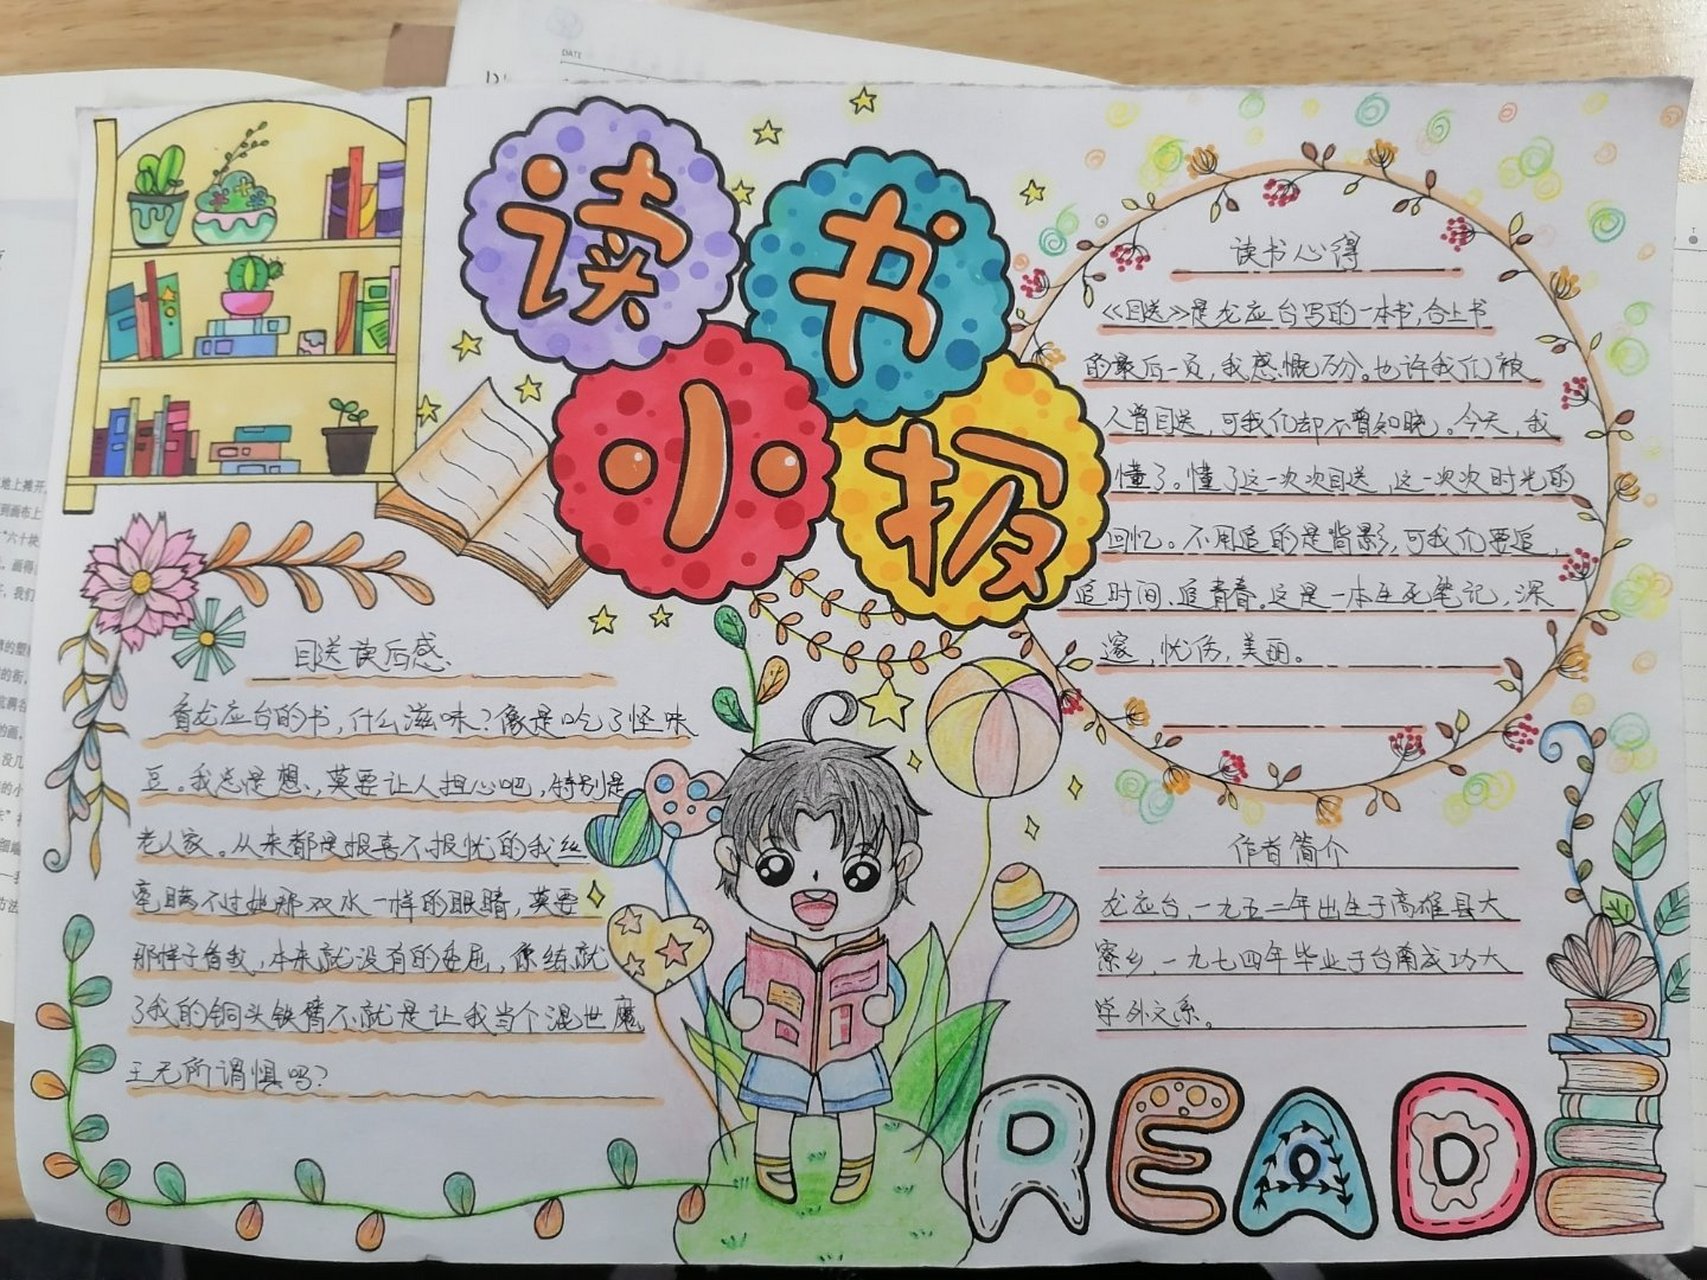 读书小报
读书心得
《目送》是龙应台写的一本书,合上书
的最后一页,我感慨万分。也许我们被
人曾目送,可我们却不曾知晓。今天,我
懂了。懂了这一次次目送,这一次次时光的
回忆。不用追的是背影,可我们要追,
追时间、追青春。这是一本生死笔记,深
邃,忧伤,美丽。
目送读后感
看龙应台的书,什么滋味?像是吃了怪味
豆。我总是想,莫要让人担心吧,特别是
老人家。从来都是报喜不报忧的我丝
毫瞒不过她那双水一样的眼睛,莫要
那样子看我,本来就没有的委屈,像练就
了我的铜头铁臂不就是让我当个混世魔
王无所谓惧吗?
作者简介
龙应台,一九五二年出生于高雄县大
寮乡,一九七四年毕业于台南成功大
学外文系。
READ
DATE